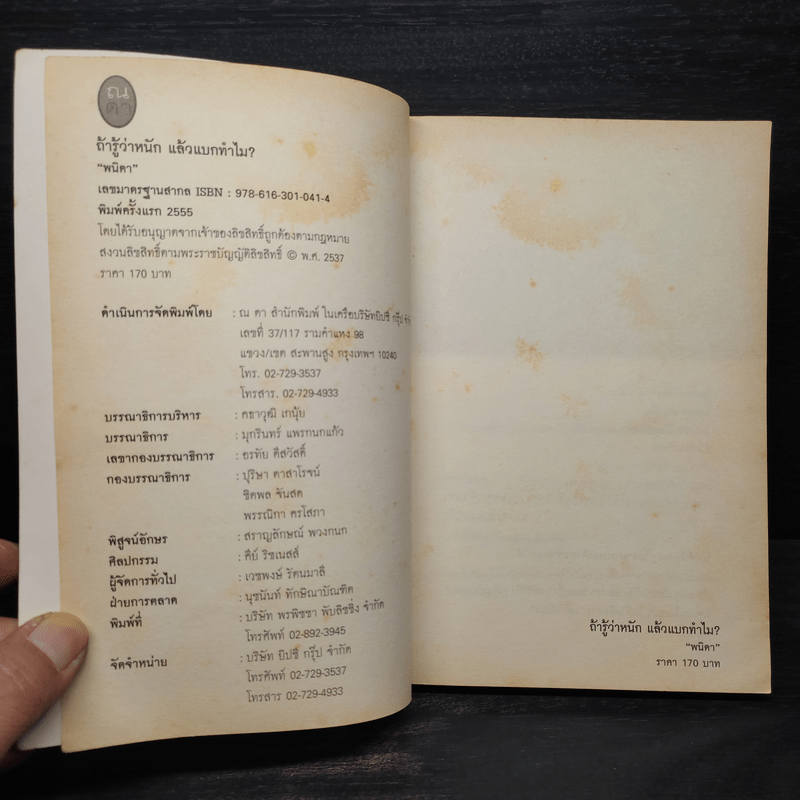 ณ
ดา
ถ้ารู้ว่าหนัก แล้วแบกทำไม?
"พนิดา"
เลขมาตรฐานสากล ISBN : 978-616-301-041-4
พิมพ์ครั้งแรก 2555
โดยได้รับอนุญาตจากเจ้าของลิขสิทธิ์ถูกต้องตามกฎหมาย
สงวนลิขสิทธิ์ตามพระราชบัญญัติลิขสิทธิ์ © พ.ศ. 2537
ราคา 170 บาท
ดำเนินการจัดพิมพ์โดย : ณ ดา สำนักพิมพ์ ในเครือบริษัทยิปซี กรุ๊ป
เลขที่ 37/117 รามคำแหง 98
แขวง/เขต สะพานสูง กรุงเทพฯ 10240
โทร. 02-729-3537
โทรสาร. 02-729-4933
บรรณาธิการบริหาร : คธาวุฒิ เกนุ้ย
บรรณาธิการ : มุกรินทร์ แพรกนกแก้ว
เลขากองบรรณาธิการ : อรทัย ดีสวัสดิ์
กองบรรณาธิการ : ปุริษา ตาสาโรจน์
ชิดพล จันสด
พรรณิกา ครโสภา
พิสูจน์อักษร : สราญลักษณ์ พวงกนก
ศิลปกรรม : คีย์ ริชเนสส์
ผู้จัดการทั่วไป : เวชพงษ์ รัตนมาลี
ฝ่ายการตลาด : นุชนันท์ ทักษิณาบัณฑิต
พิมพ์ที่ : บริษัท พรพิชชา พับลิชชิ่ง จำกัด
โทรศัพท์ 02-892-3945
จัดจำหน่าย : บริษัท ยิปซี กรุ๊ป จำกัด
โทรศัพท์ 02-729-3537
โทรสาร 02-729-4933
ถ้ารู้ว่าหนัก แล้วแบกทำไม?
"พนิดา"
ราคา 170 บาท